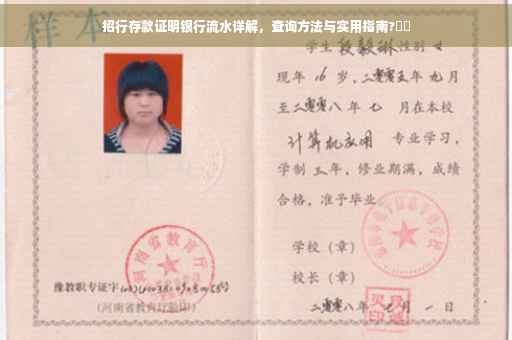 招行存款证明银行流水详解，查询方法与实用指南?
样本
学生 段毅琳 性别 女
现年 16 岁，二零零五年 九月
至二零零八年 七 月在本校
计算机应用 专业学习，
学制 三年，修业期满，成绩
合格，准予毕业
学校（章）
校长（章）
二零零八年 七 月 一 日
河南省教育厅
豫教职专证字
(河南省教育厅验印)